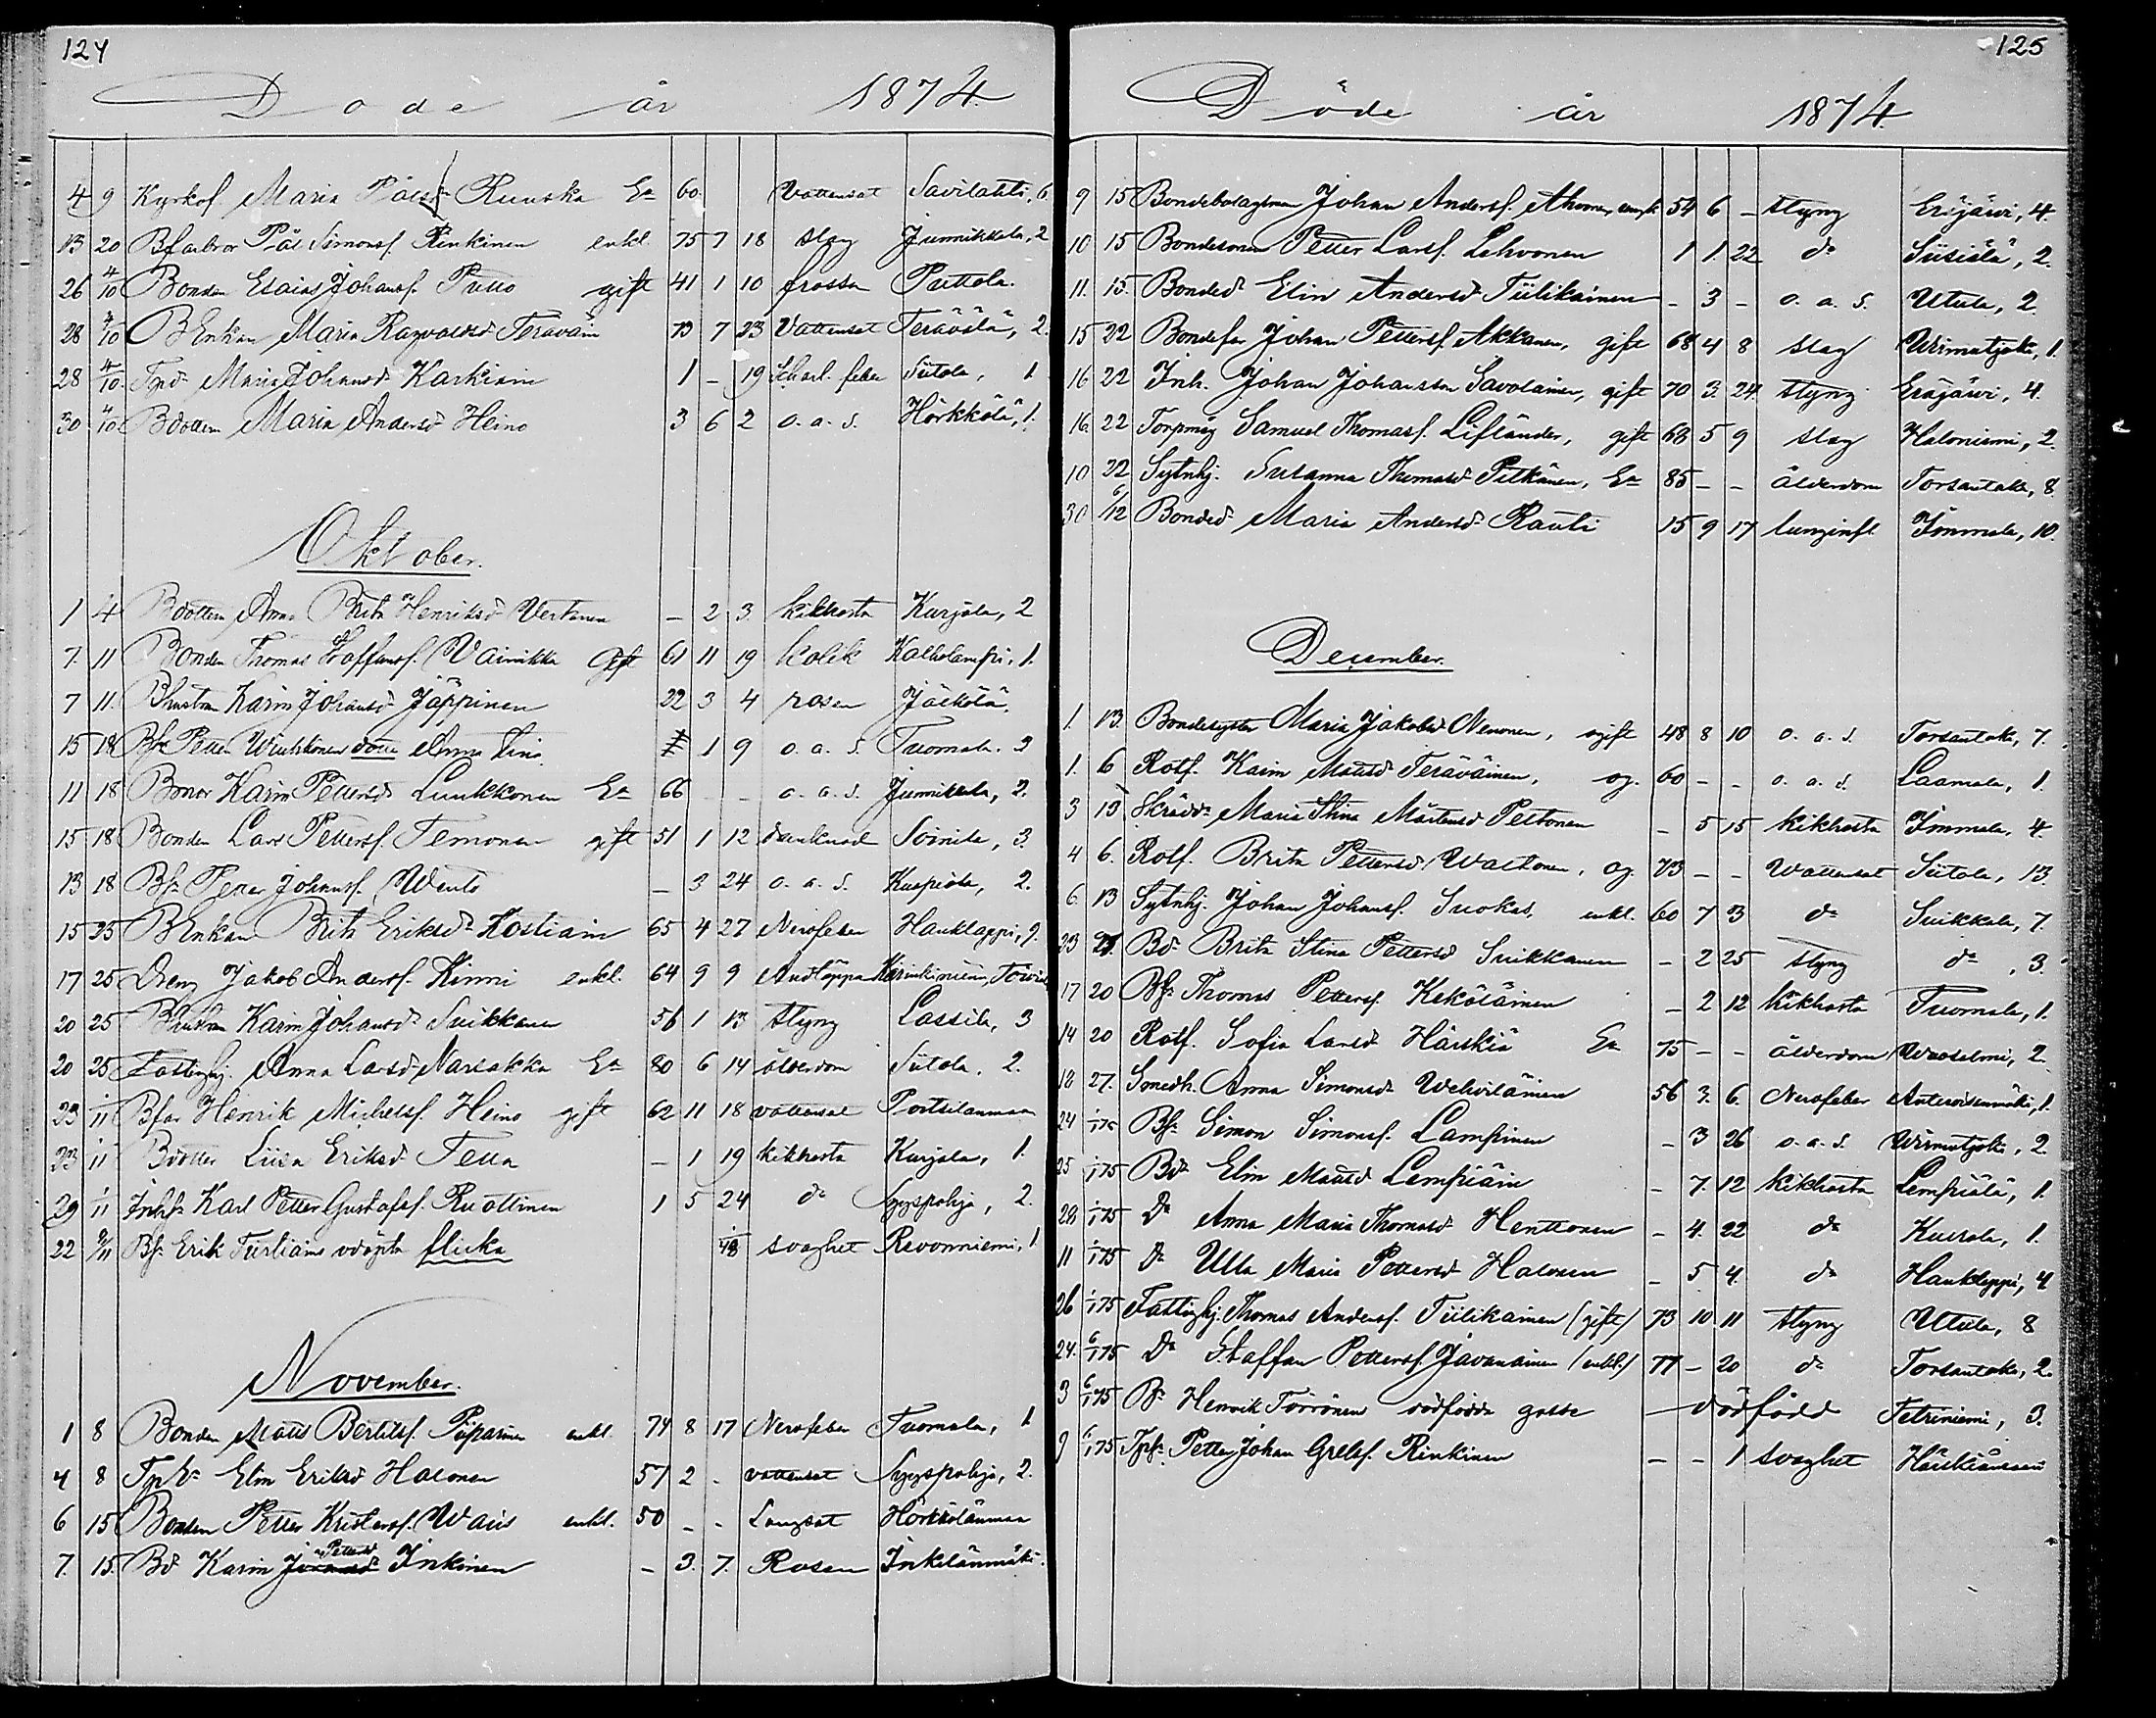 124
Döde år 1874.
4 9 Kyrkof Maria Påls Ruuska Ea 60 Vattensot Savilahti, 6
13 20 Bfarbror Pål Simonsf. Rinkinen enkl. 75 7 18 slag Junnikkala, 2
26 4/10 Bonden Esaias Johansf. Putto gift 41 1 10 frossa Puttola.
28 4/10 BEnkan Maria Ragvaldsd Teräväin 73 7 23 Vattensot Teräválä, 2.
28 4/10 Tpd. Maria Johansd Karkiain 1 - 19 Scharl. feber Sütola, 1
30 4/10 Bdottern Maria Andersd Heino 3 6 2 o. a. s. Hörkkölä, 1.
Oktober.
1 4 Bdottern Anna Brita Henriksd Vertanen - 2 3 kikhosta Kurjala, 2
7. 11 Bonden Thomas Staffansf. Wainikka Gift 61 11 19 kolik Kalholampi, 1.
7 11. Bhustrun Karin Johansd Jäppinen 22 3 4 rosen Jäckölä.
15 18 Petter dotter Anna Stina 1 9 o. a. s. Tuomala. 3
11 18 Bmor Karin Pettersd Luukkonen Ea 66 - - o. a. s. Junnikkala, 2.
15 18 Bonden Lars Pettersf. Temonen gift 51 1 12 drunknad Soinila, 3.
13 18 Bs. Petter Johansf. Wento - 3 24 o. a. s. Kuspiala, 2.
15 25 BEnkan Brita Eriksd. Kostiain 65 4 27 Nervfeber Hauklappi, 9.
17 25 Dreng Jakob Andersf. Kinni enkl. 64 9 9 Andtäppa
20 25 Bhustrun Karin Johansd. Suikkanen 56 1 13 styng Lassila, 3
20 25 Fattighj. Anna Larsd. Narsakka Ea 80 6 14 ålderdom Sütola. 2.
23 1/11 Bfar Henrik Michelsf. Heino gift 62 11 18 vattensot Portsilanmaa
23 1/11 Bdotter Liisa Eriksd. Tella - 1 19 kikhosta Kurjala, 1.
29 1/11 Inhs. Karl Petter Gustafsf. Ruottinen 1 5 24 do Syyspohja, 2.
22 2/11 Bs. Erik Tiirliains odöpta flicka 1/48 svaghet Revonniemi, 1
November.
1 8 Bonden Matts Bertilsf. Piiparinen enkl. 74 8 17 Nervfeber Tuomala, 1
4 8 Tph. Elin Eriksd Halonen 57 2 - vattensot Syyspohja, 2.
6 15 Bonden Petter Kristersf. Wais enkl. 50 - - Lungsot Hörkkölänmaa
7. 15. Bd Karin Pettersd Inkinen - 3. 7. Rosen Inkilänmäki.
125
Döde år 1874.
9 15 Bondebolagsman Johan Andersf. Ahvonen, 54 6 - styng Eräjärvi, 4.
10 15 Bondesonen Petter Larsf. Lehvonen 1 1 22 do Siisiälä, 2.
11. 15. Bonded. Elin Andersd. Tiilikainen - 3 - o. a. s. Utula, 2.
15 22 Bondefar Johan Pettersf. Akkanen, gift 68 4 8 slag Wirmutjoki, 1.
16 22 Inh. Johan Johansson Savolainen, gift 70 3. 24. styng Eräjärvi, 4.
16. 22 Torpmåg Samuel Thomasf. Lifländer, gift 68 5 9 slag Haloniemi, 2.
10 22 Sytnhj. Susanna Thomasd. Pitkänen, Ea 85 - - ålderdom Torsantaka, 8.
30 6/12 Bonded. Maria Andersd. Rauti 15 9 17 lunginfl. Immala, 10.
December.
1. 13. Bondesyster Maria Jakobsd Nenonen, ogift 48 8 10 o. a. s. Torsantaka, 7.
1. 6 Rotf. Karin Mattsd. Teräväinen, og. 60 - - o. a. s. Laamala, 1.
3 13 Skrädd. Maria Stina Mårtensd Peltonen - 5 15 kikhosta Immala, 4.
4 6. Rotf. Brita Pettersd. Waltonen, og. 73 - - Wattensot Sütola, 13.
6. 13 Sytnhj. Johan Johansf. Suokas, enkl. 60 7 3 do Suikkala, 7.
23 27. Bd. Brita Stina Pettersd Suikkanen - 2 25 styng do, 3.
17 20 Bs. Thomas Pettersf. Kekäläinen - 2 12 kikhosta Tuomala, 1.
14 20 Rotf. Sofia Larsd. Härskiä Ea 75 - - ålderdom Woosalmi, 2.
18 27. Smedh. Anna Simonsd. Wehviläinen 56 3. 6. Nervfeber
24 1/1 75 Bs. Simon Simonsf. Lampinen - 3 26 o. a. s. Wirmutjoki, 2.
25 1/1 75 Bd. Elin Mattsd Lempiäin - 7. 12 kikhosta Lempiälä, 1.
28. 1/1 75 Do Anna Maria Thomasd Henttonen - 4. 22 do Kurjala, 1.
11 1/1 75 Do Ulla Maria Pettersd Halonen - 5 4. do Hauklappi, 4
26 1/1 75 Fattighj. Thomas Andersf. Tiilikainen (gift) 73 10. 11 styng Utula, 8
24. 6/1 75 Do Staffan Pettersf. Javanainen (enkl.) 77 - 20 do Torsantaka, 2.
3 6/1 75 Bs. Henrik Törrönen dödfödd gosse - dödfödd Tetriniemi, 3.
9 6/1 75 Tps. Petter Johan Grelsf. Rinkinen - - 1 svaghet Härskiänsaari